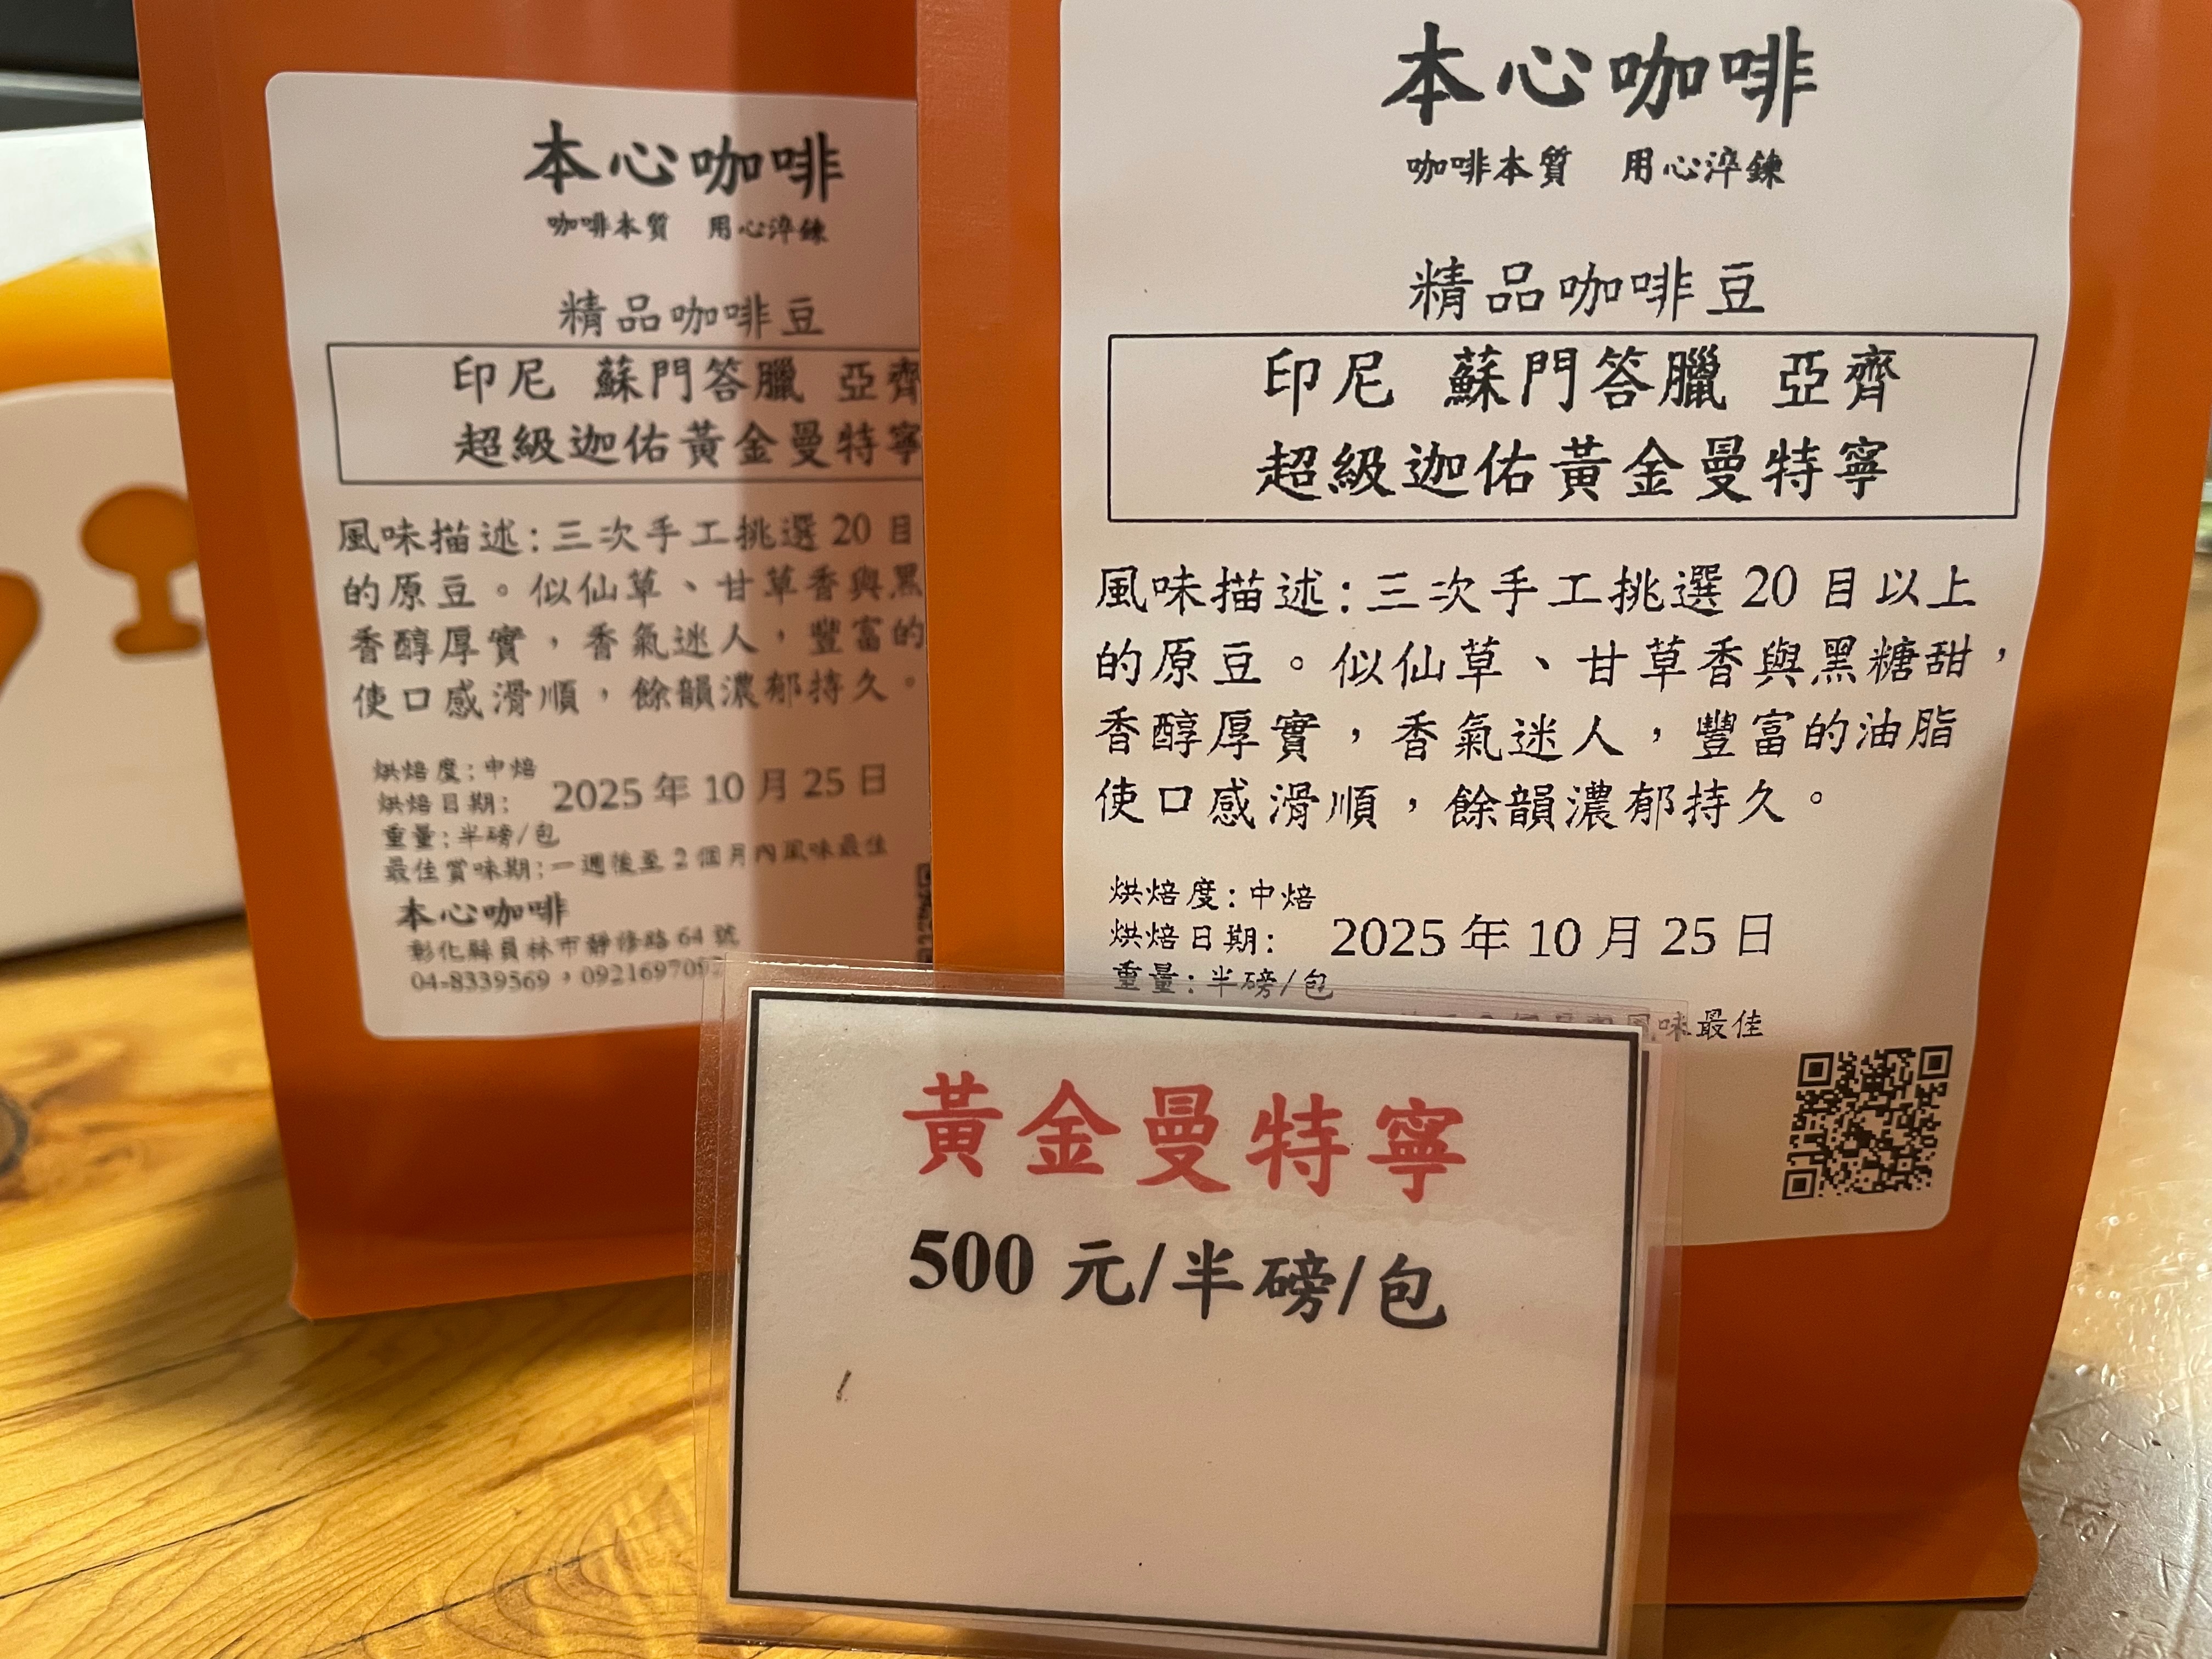 本心咖啡
咖啡本質 用心淬鍊
精品咖啡豆
印尼 蘇門答臘 亞齊
超級迦佑黃金曼特寧
風味描述:三次手工挑選 20 目
的原豆。似仙草、甘草香與黑
香醇厚實,香氣迷人,豐富的
使口感滑順,餘韻濃郁持久。
烘焙度:中焙
烘焙日期: 2025 年 10 月 25 日
重量:半磅/包
最佳賞味期:一週後至 2 個月內風味最佳
本心咖啡
彰化縣員林市靜修路 64 號
04-8339569,0921697
本心咖啡
咖啡本質 用心淬鍊
精品咖啡豆
印尼 蘇門答臘 亞齊
超級迦佑黃金曼特寧
風味描述:三次手工挑選 20 目以上
的原豆。似仙草、甘草香與黑糖甜,
香醇厚實,香氣迷人,豐富的油脂
使口感滑順,餘韻濃郁持久。
烘焙度:中焙
烘焙日期: 2025 年 10 月 25 日
重量:半磅/包
味最佳
黃金曼特寧
500 元/半磅/包